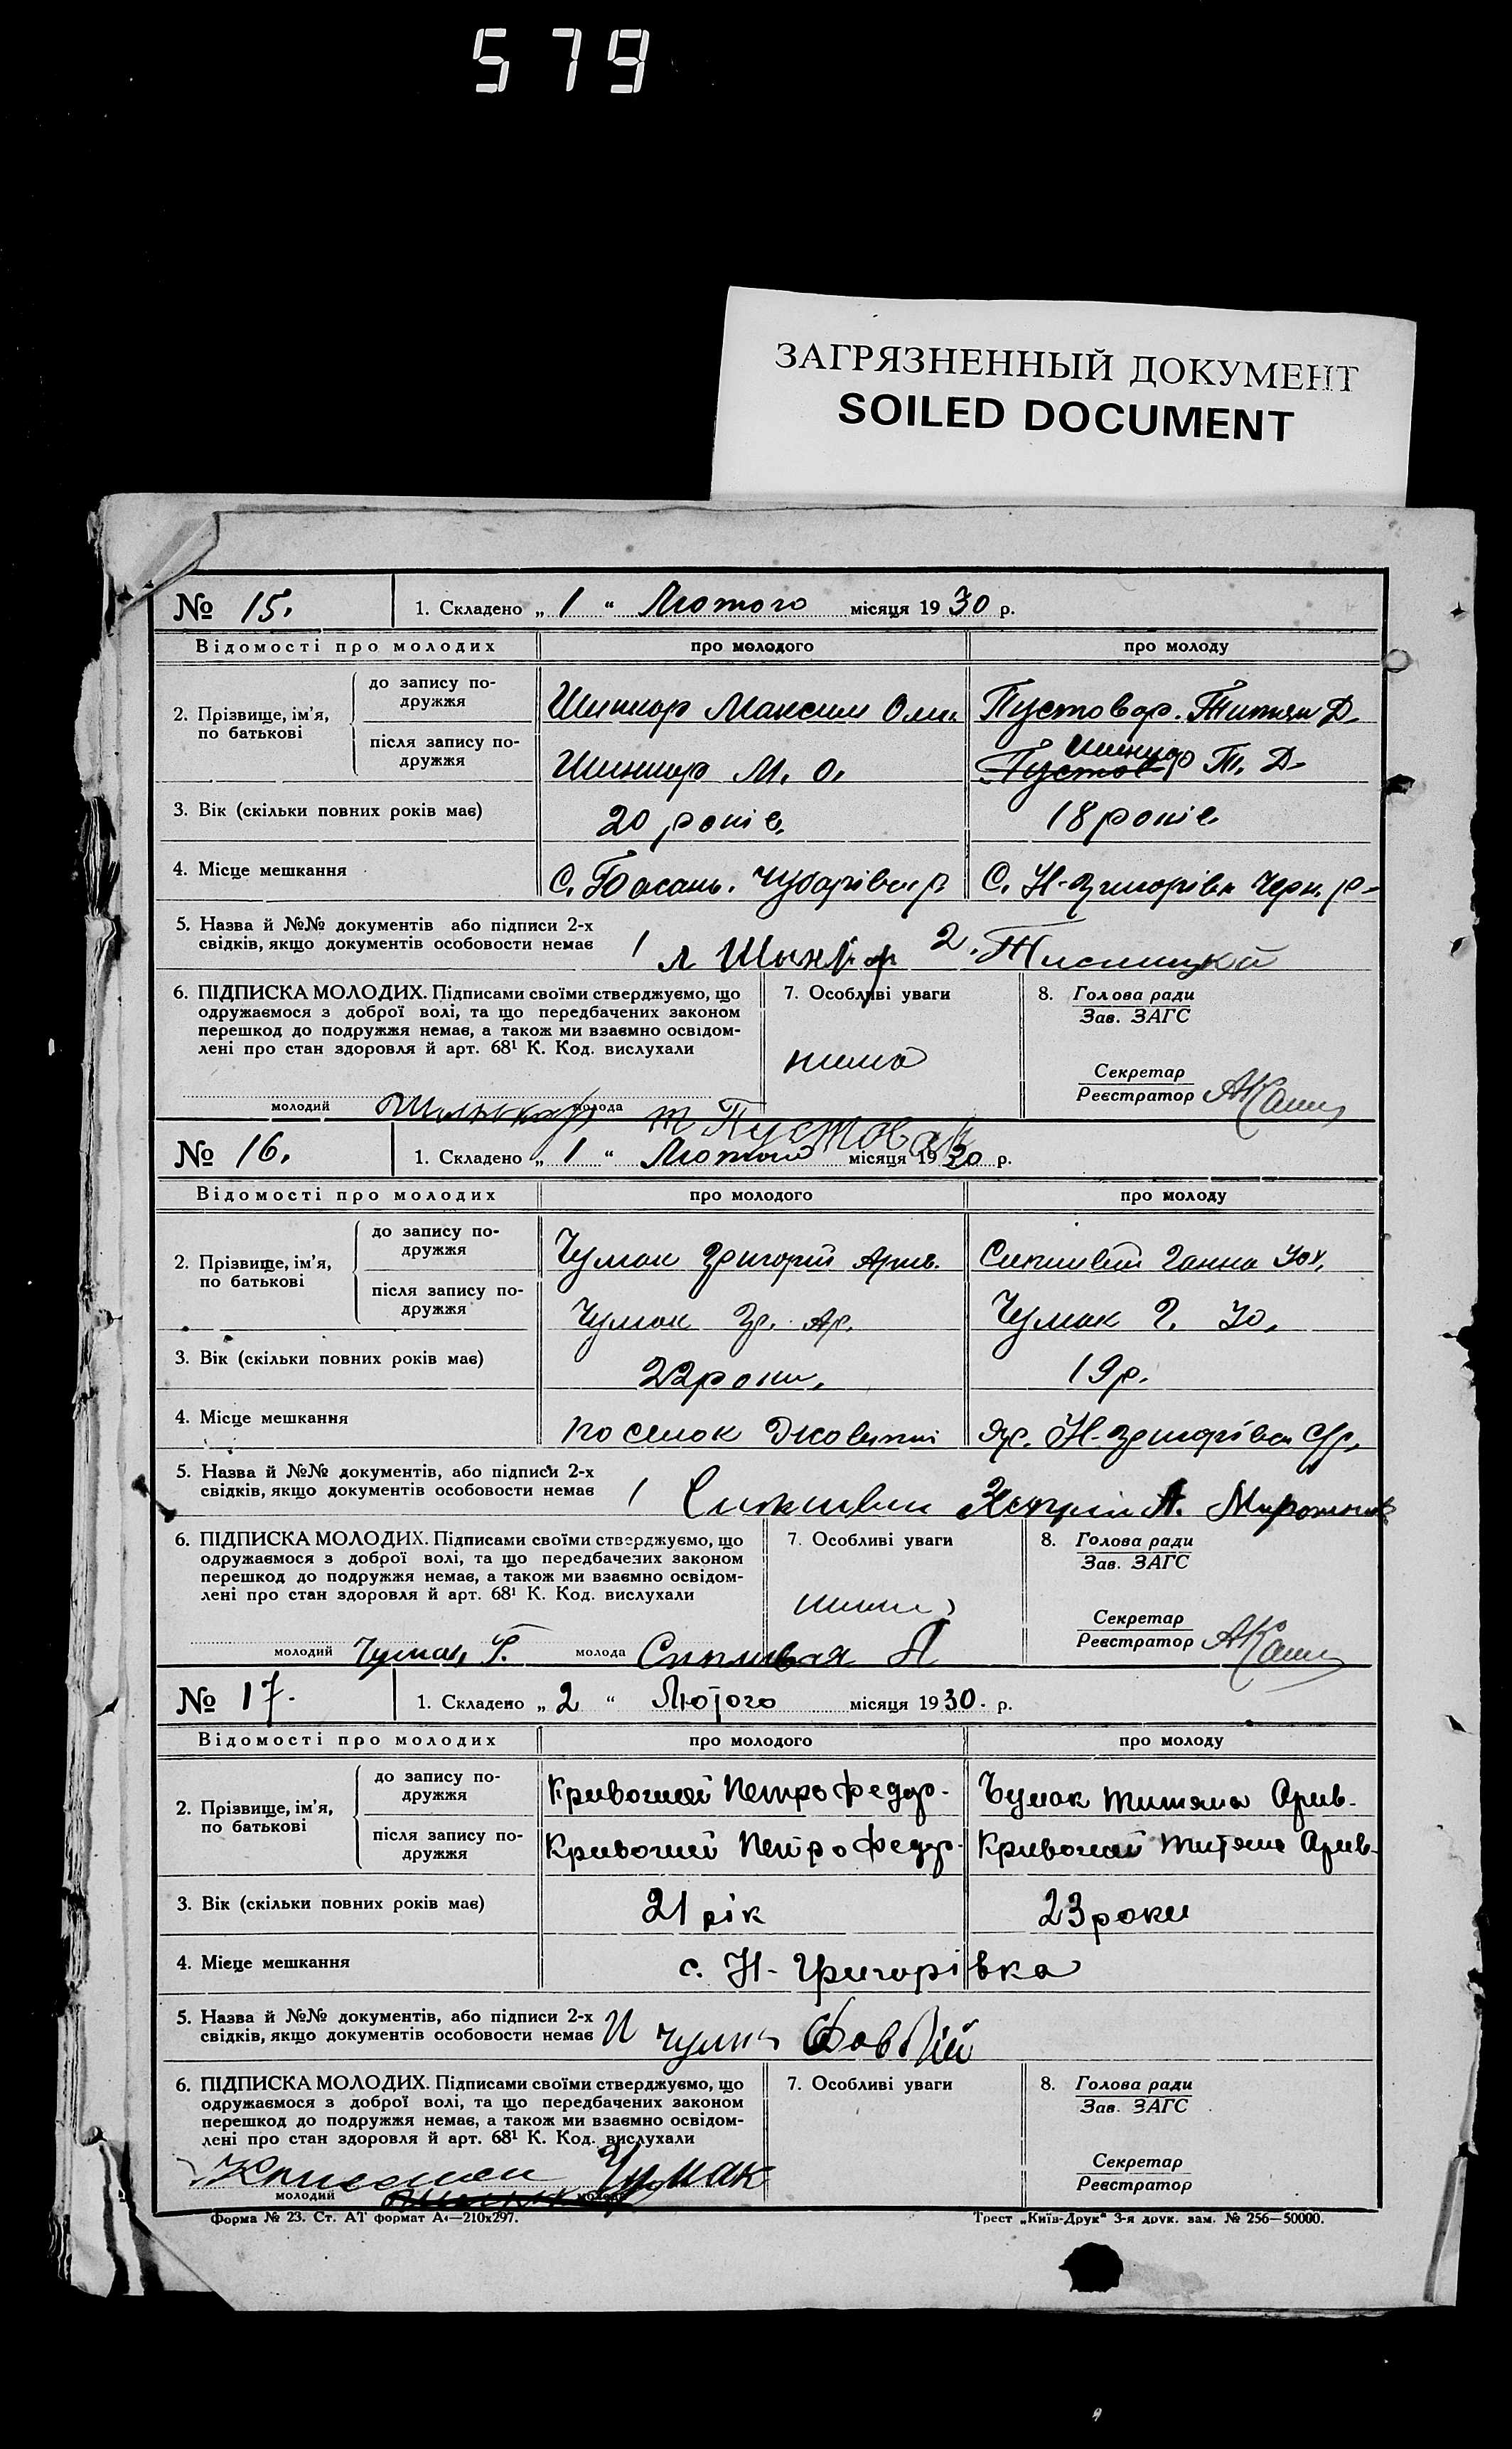 579
ЗАГРЯЗНЕННЫЙ ДОКУМЕНТ
SOILED DOCUMENT
№ 15. 1. Складено „ 1 “ Лютого місяця 1930 р.
Відомості про молодих про молодого про молоду
2. Прізвище, ім’я, по батькові
до запису по-
дружжя Шинкор Максим Пустовар. Титян Д.
після запису по-
дружжя Шинкор М. О. Шинкор Т. Д.
3. Вік (скільки повних років має) 20 років. 18 років
4. Місце мешкання С. Басань. Чубарівск р С. Н-Григорівка Черн. р-
5. Назва й №№ документів або підписи 2-х
свідків, якщо документів особовости немає 1 2.
6. ПІДПИСКА МОЛОДИХ. Підписами своїми стверджуємо, що
одружаємося з доброї волі, та що передбачених законом
перешкод до подружжя немає, а також ми взаємно освідом-
лені про стан здоровля й арт. 68¹ К. Код. вислухали
молодий молода т Пустовар
7. Особливі уваги
нима
8. Голова ради
Зав. ЗАГС
Секретар
Реєстратор
№ 16. 1. Складено „ 1 “ Лютого місяця 1930 р.
Відомості про молодих про молодого про молоду
2. Прізвище, ім’я, по батькові
до запису по-
дружжя Чумак Григорій Арив. Ганна
після запису по-
дружжя Чумак Гр. Ар. Чумак Г. Ю.
3. Вік (скільки повних років має) 22 роки. 19 р.
4. Місце мешкання поселок Н-Григорівка
5. Назва й №№ документів, або підписи 2-х
свідків, якщо документів особовости немає 1
6. ПІДПИСКА МОЛОДИХ. Підписами своїми стверджуємо, що
одружаємося з доброї волі, та що передбачених законом
перешкод до подружжя немає, а також ми взаємно освідом-
лені про стан здоровля й арт. 68¹ К. Код. вислухали
молодий Чумак Г. молода
7. Особливі уваги
8. Голова ради
Зав. ЗАГС
Секретар
Реєстратор
№ 17. 1. Складено „ 2 “ Лютого місяця 1930. р.
Відомості про молодих про молодого про молоду
2. Прізвище, ім’я, по батькові
до запису по-
дружжя Кривочий Петро Федор. Чумак Титяна Арив.
після запису по-
дружжя Кривочий Петро Федор. Кривочий Титяна Арив.
3. Вік (скільки повних років має) 21 рік 23 роки
4. Місце мешкання с. Н-Григорівка
5. Назва й №№ документів, або підписи 2-х
свідків, якщо документів особовости немає
6. ПІДПИСКА МОЛОДИХ. Підписами своїми стверджуємо, що
одружаємося з доброї волі, та що передбачених законом
перешкод до подружжя немає, а також ми взаємно освідом-
лені про стан здоровля й арт. 68¹ К. Код. вислухали
Чумак
молодий молода
7. Особливі уваги
8. Голова ради
Зав. ЗАГС
Секретар
Реєстратор
Форма № 23. Ст. АТ формат А4—210х297.
Трест „Київ-Друк“ 3-я друк. зам. № 256—50000.